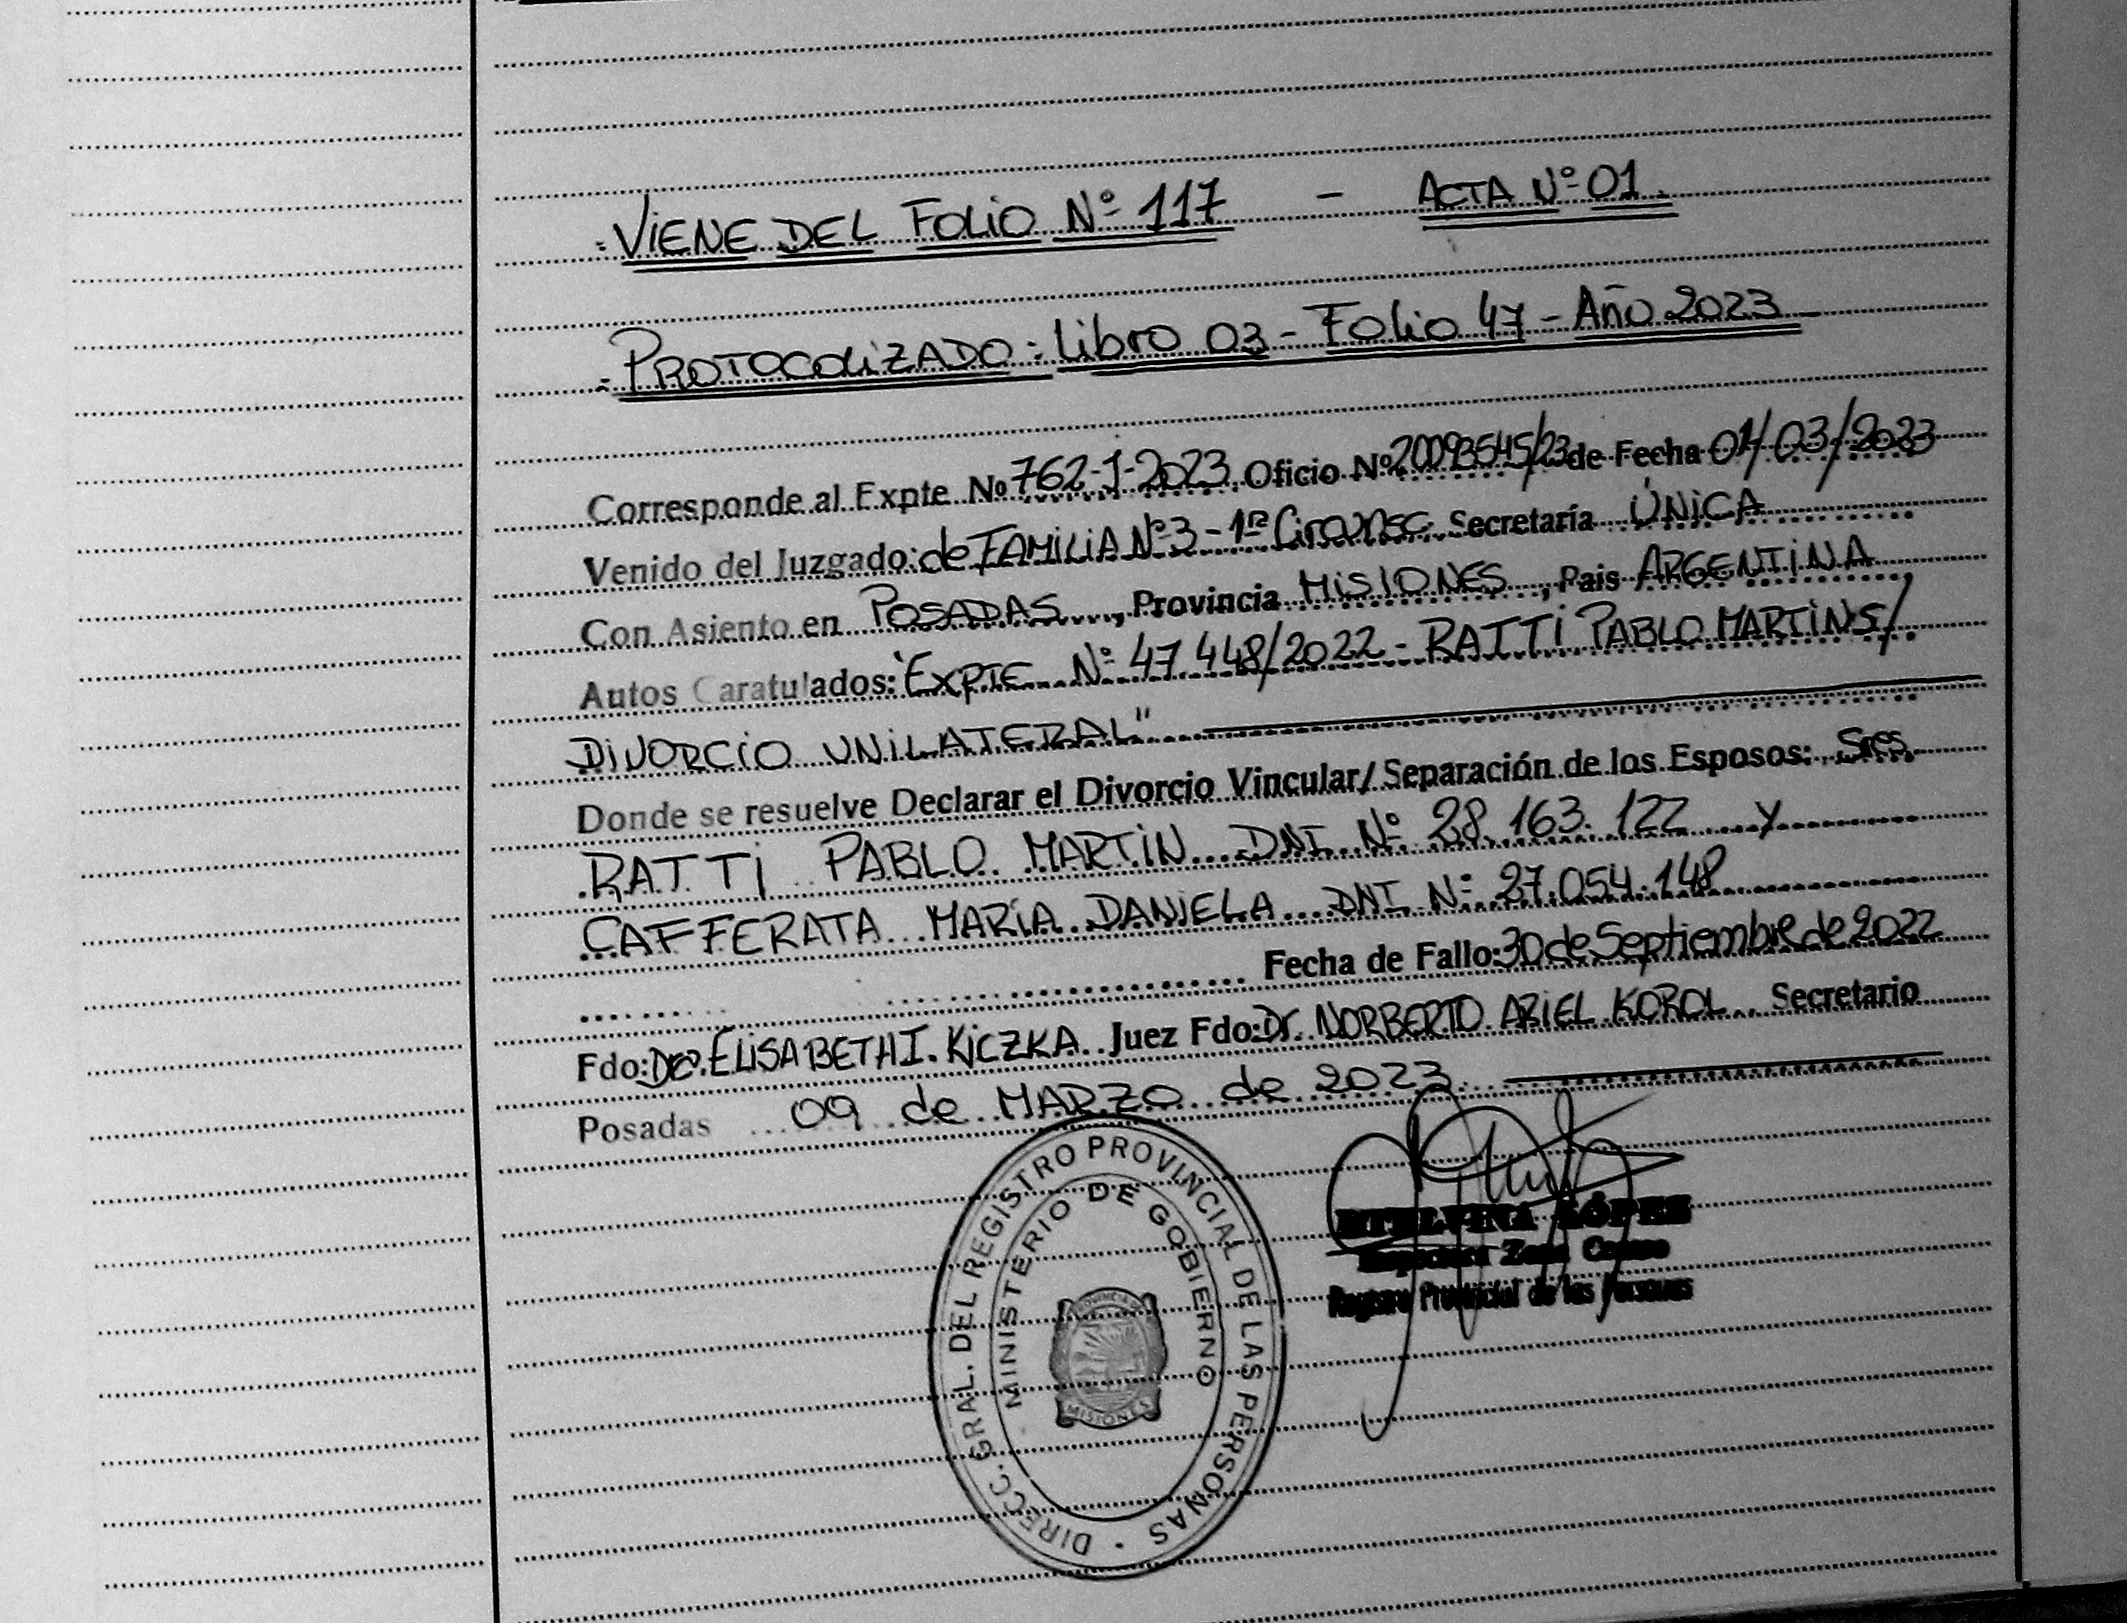 VIENE DEL FOLIO Nº 117 - ACTA Nº 01.
PROTOCOLIZADO: Libro 03 - Folio 47 - Año 2023
Corresponde al Expte Nº 762-J-2023 Oficio Nº 20093545/23 de Fecha 01/03/2023
Venido del Juzgado: de FAMILIA Nº 3 - 1ra Circunsc. Secretaría ÚNICA
Con Asiento en POSADAS, Provincia MISIONES, Pais ARGENTINA
Autos Caratulados: "EXPTE Nº 47.448/2022 - RATTI PABLO MARTIN S/
DIVORCIO UNILATERAL"
Donde se resuelve Declarar el Divorcio Vincular/Separación de los Esposos: Sres
RATTI PABLO MARTIN DNI Nº 28.163.122 y
CAFFERATA MARIA DANIELA DNI Nº 27.054.148
Fecha de Fallo: 30 de Septiembre de 2022
Fdo: Dra. ELISABETH I. KICZKA. Juez Fdo: Dr. NORBERTO ARIEL KOROL. Secretario
Posadas 09 de MARZO de 2023.
DIRECC. GRAL. DEL REGISTRO PROVINCIAL DE LAS PERSONAS
MINISTERIO DE GOBIERNO
PROVINCIA DE
MISIONES
LÓPEZ
Zona Centro
Registro Provincial de las Personas